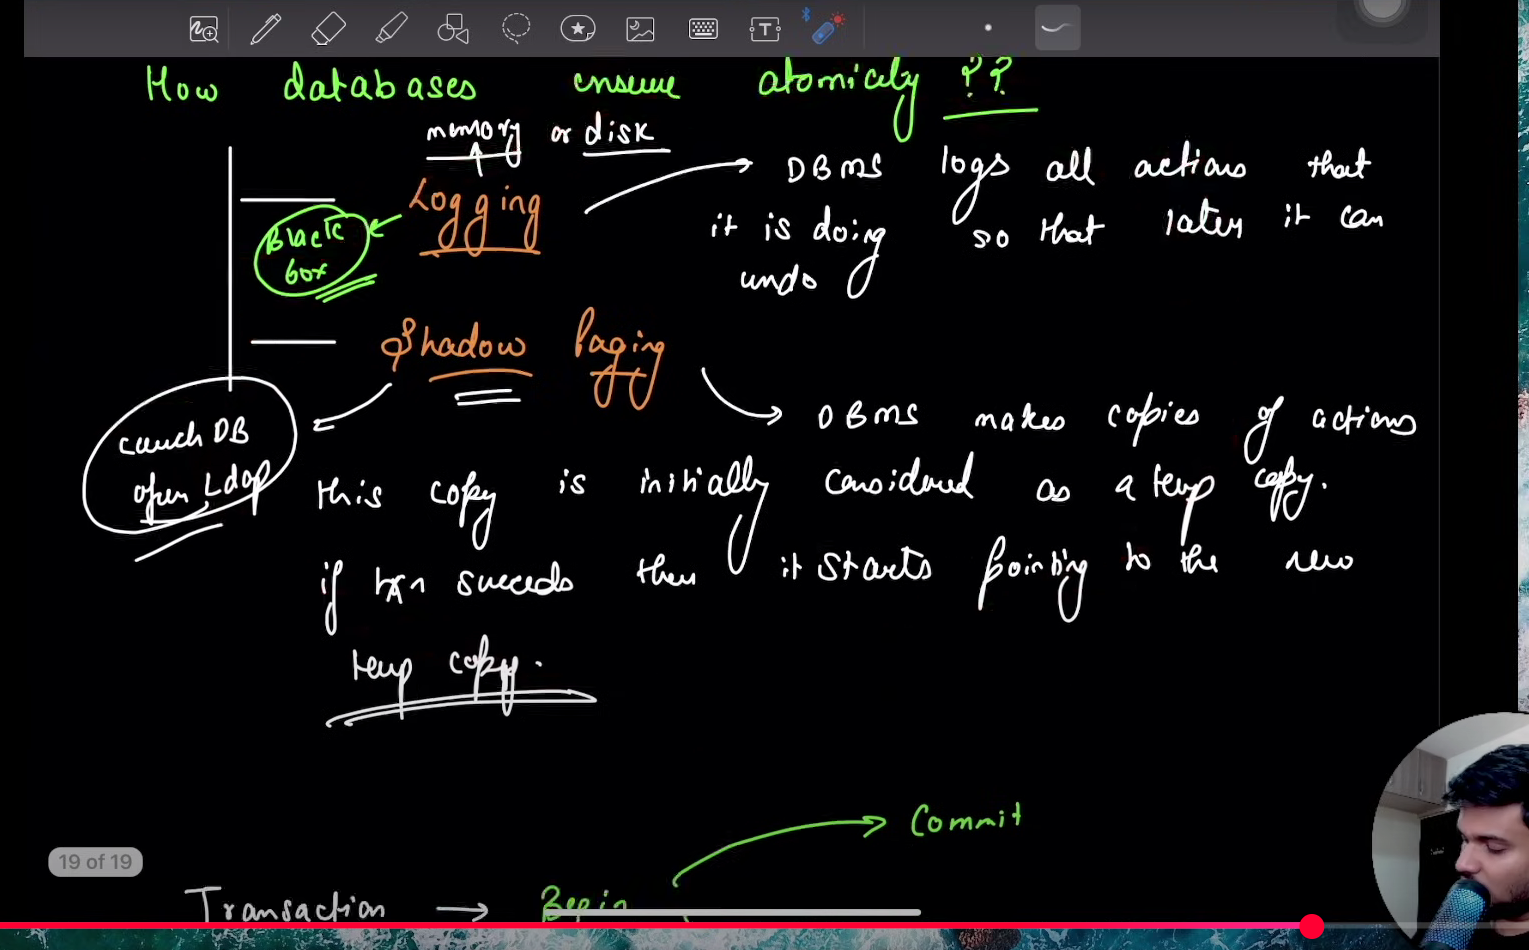 How databases ensure atomicity ??
memory or disk
Logging
Black box
DBMS logs all actions that
it is doing so that later it can
undo
Shadow Paging
couch DB
open Ldap
DBMS makes copies of actions
this copy is initially considered as a temp copy.
if txn succeeds then it starts pointing to the new
temp copy.
Commit
19 of 19
Transaction → Begin